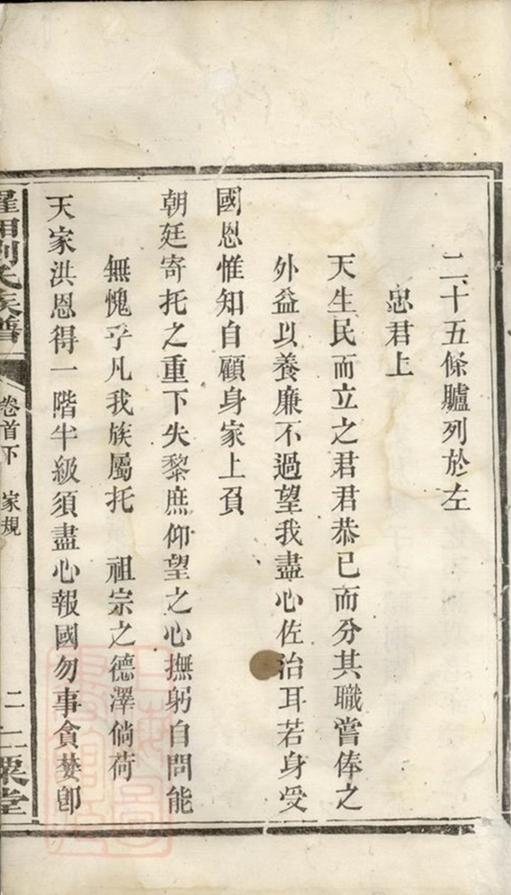 二十五條臚列於左
忠君上
天生民而立之君君恭己而分其職嘗俸之
外益以養廉不過望我盡心佐治耳若身受
國恩惟知自顧身家上負
朝廷寄托之重下失黎庶仰望之心撫躬自問能
無愧乎凡我族屬托　祖宗之德澤倘荷
天家洪恩得一階半級須盡心報國勿事貪婪卽
劉氏族譜
卷首下　家規
二